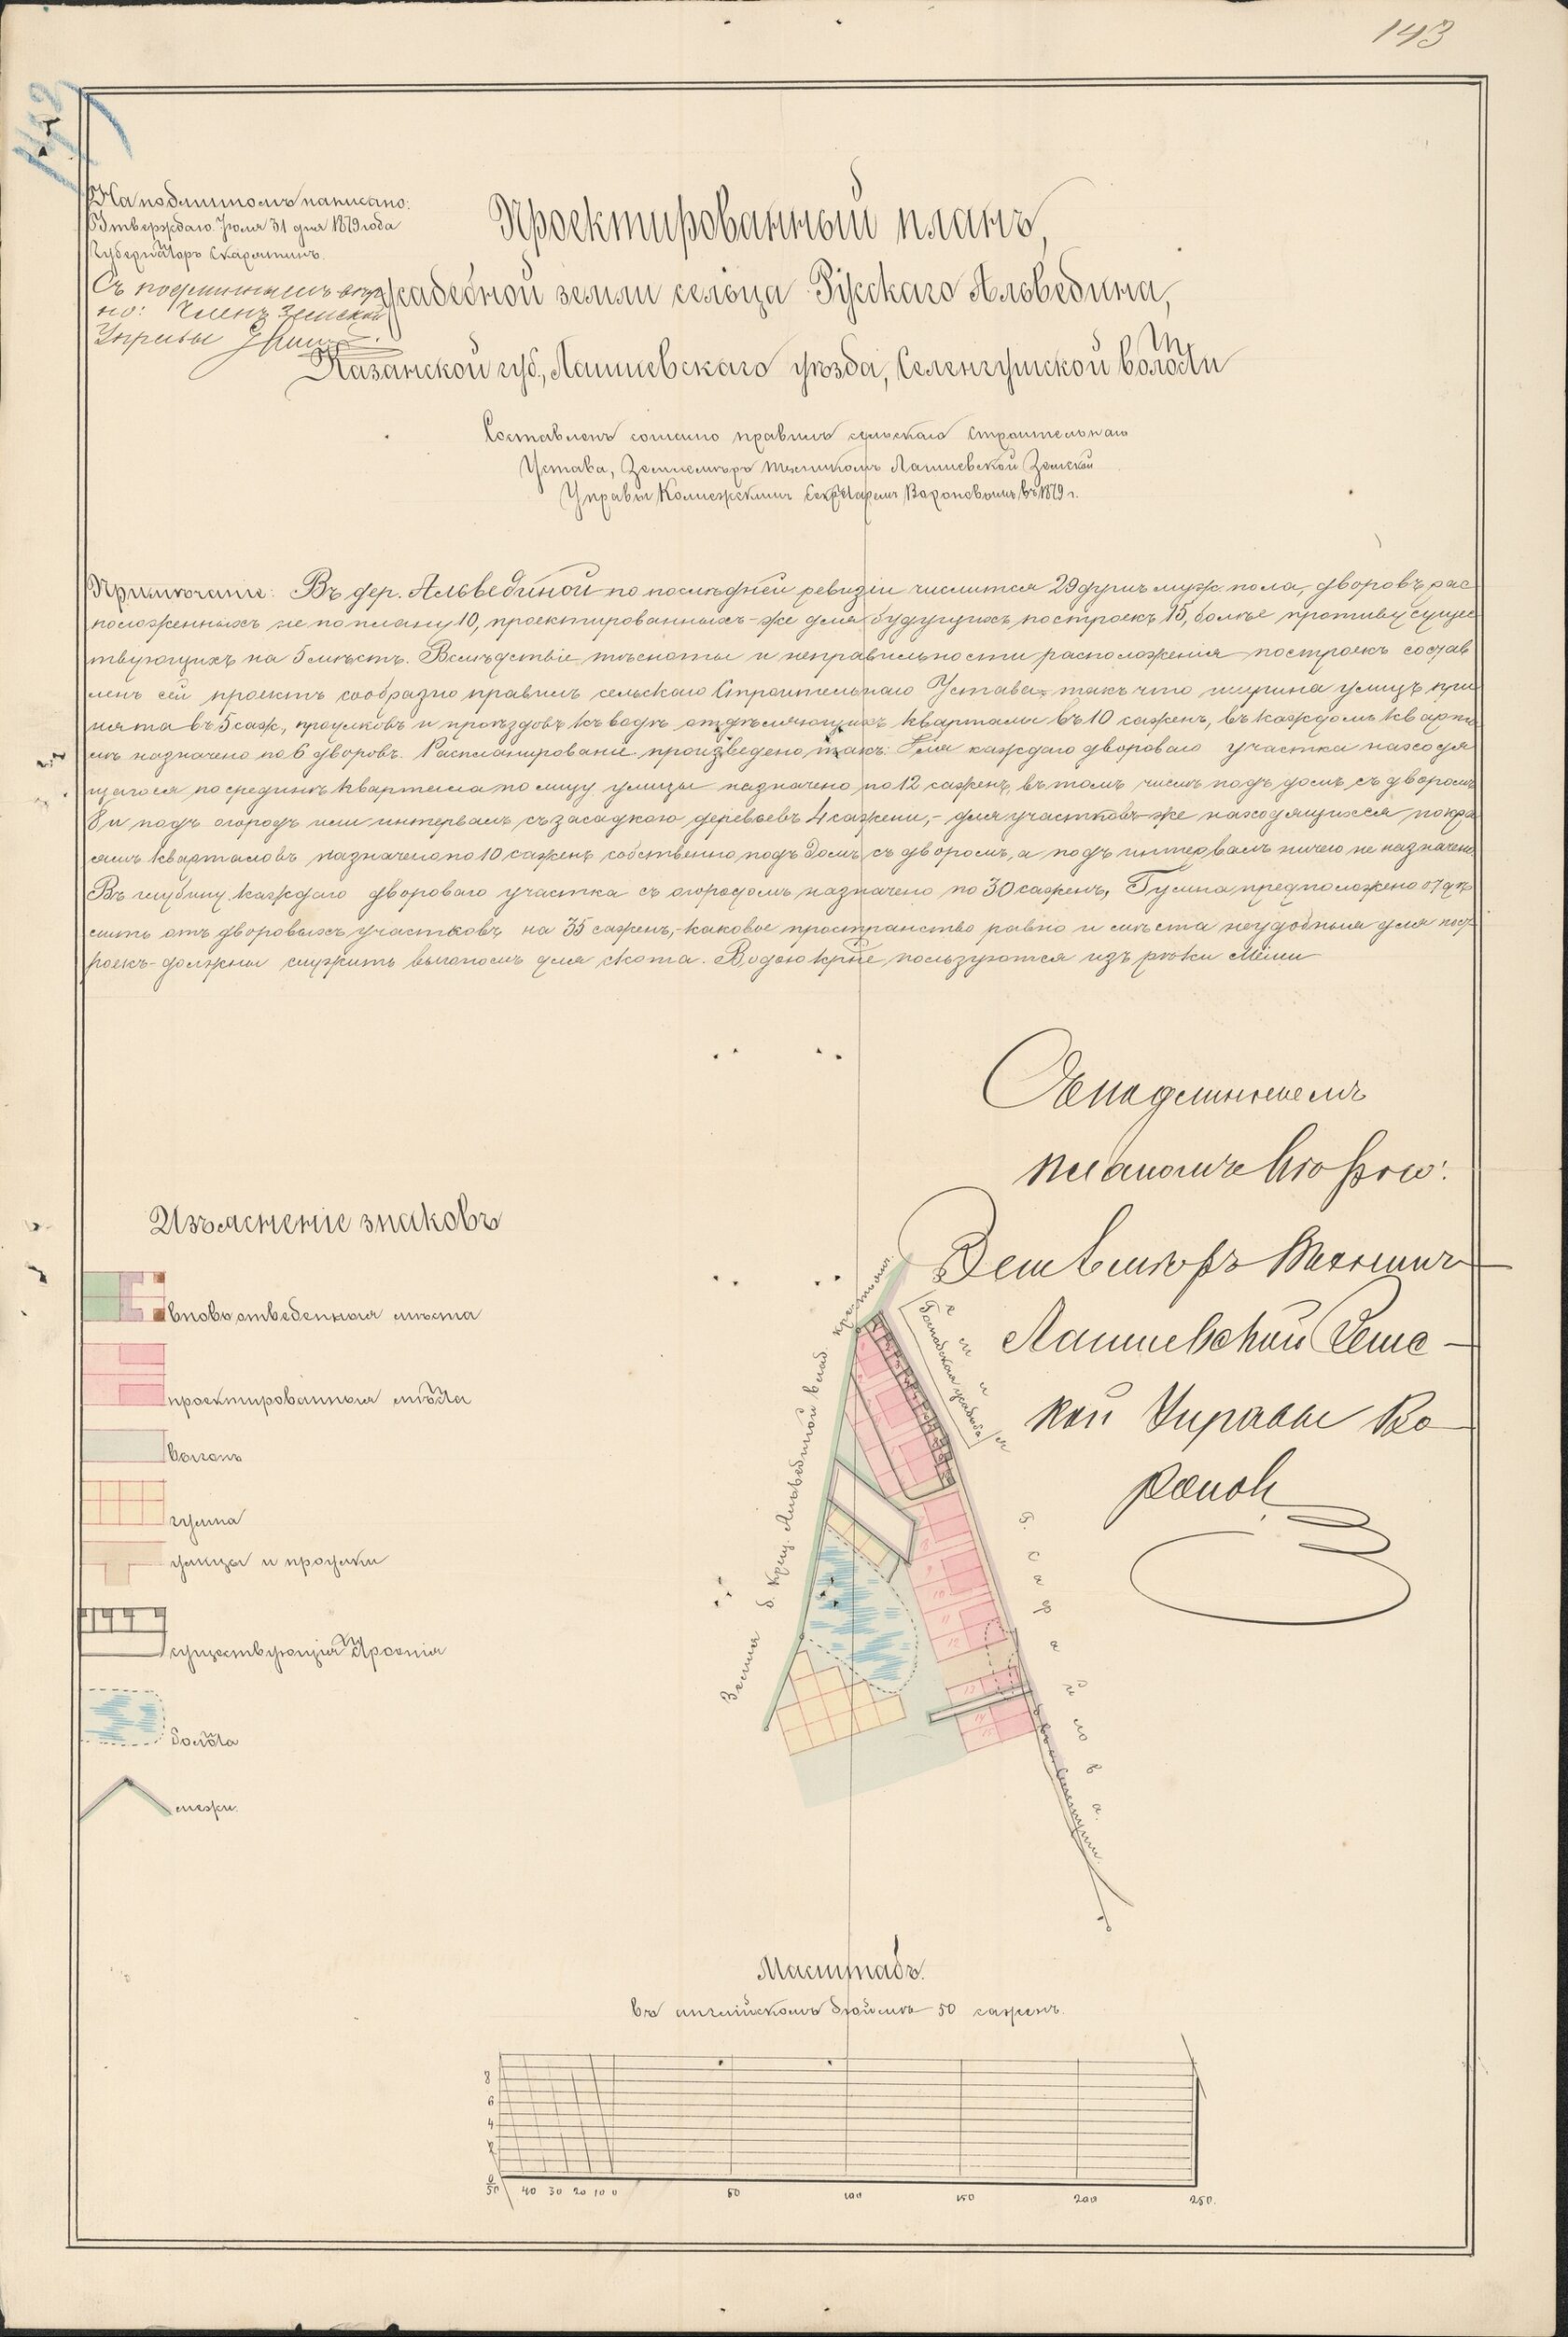 143
На подлинномъ написано:
Утверждаю. Іюля 31 дня 1879 года
Губернаторъ Скарятинъ.
Съ подлиннымъ вѣр
но: Членъ Земской
Управы
Проектированный планъ,
усадебной земли сельца Русскаго Альведина,
Казанской губ., Лаишевскаго уѣзда, Селенгушской волости
Составленъ согласно правилъ сельскаго Строительнаго
Устава, Землемѣръ Техникомъ Лаишевской Земской
Управы Коллежскимъ Секретаремъ Вороновымъ, въ 1879 г.
Примѣчаніе: Въ дер. Альвединой по послѣдней ревизіи числится 29 душъ муж. пола, дворовъ, рас
положенныхъ не по плану 10, проектированныхъ-же для будущихъ построекъ 15, болѣе противу сущес
твующихъ на 5 мѣстъ. Вслѣдствіе тѣсноты и неправильности расположенія построекъ состав
ленъ сей проектъ сообразно правилъ сельскаго Строительнаго Устава, такъ что ширина улицъ при
нята въ 5 саж., проулковъ и проѣздовъ къ водѣ отдѣляющихъ кварталы въ 10 саженъ, въ каждомъ кварта
лѣ назначено по 6 дворовъ. Распланированіе произведено, такъ: Для каждаго двороваго участка находя
щагося по срединѣ квартала по лицу улицы назначено по 12 саженъ, въ томъ числѣ подъ домъ съ дворомъ
8 и подъ огородъ или интервалъ съ засадкою деревьевъ 4 сажени,- для участковъ-же находящихся по кра
ямъ кварталовъ назначено по 10 саженъ собственно подъ домъ съ дворомъ, а подъ интервалъ ничего не назначено.
Въ глубину каждаго двороваго участка съ огородомъ назначено по 30 саженъ, Гумна предположено отдѣ
лить отъ дворовыхъ участковъ на 35 саженъ,-каковое пространство равно и мѣста неудобныя для пост
роекъ-должны служить выгономъ для скота. Водою крне пользуются изъ рѣки Мёши
Съ подлиннымъ
планомъ вѣрно:
Землемѣръ Техникъ
Лаишевской Земс-
кой Управы Во-
роновъ
Изъясненіе знаковъ
вновь отведенныя мѣста
проектированныя мѣста
выгонъ
гумна
улицы и проулки
существующія строенія
болота
межи.
Земля б. Крещ. Альвединой влад. крестьянъ.
Земля
Господская усадьба
б. Сафайлова.
8
9
10
11
12
13
14
15
Масштабъ.
въ англійскомъ дюймѣ 50 саженъ.
8
6
4
2
0
50 40 30 20 10 0 50 100 150 200 250.